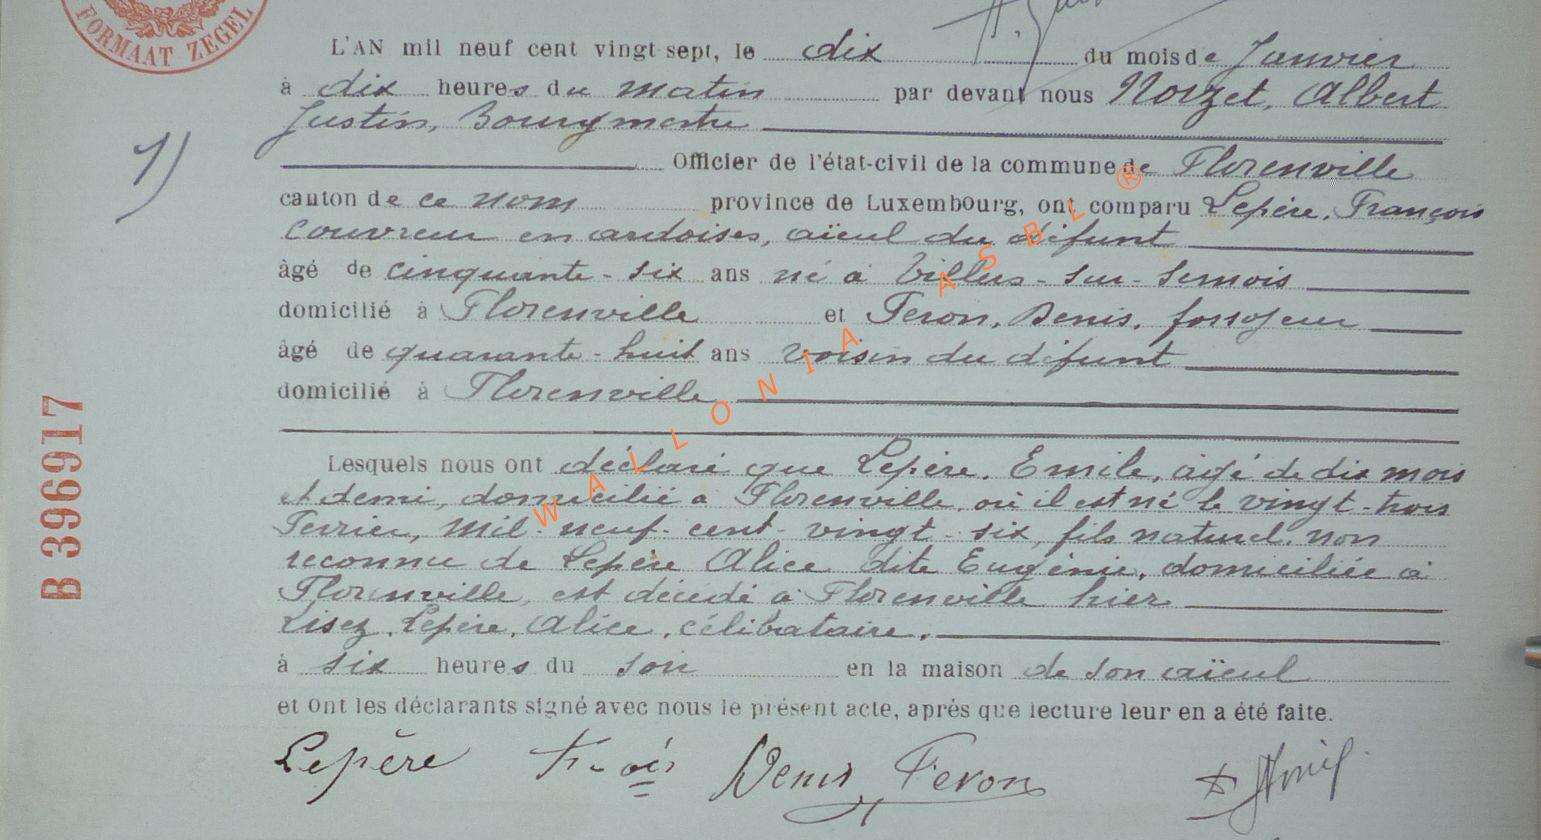 FORMAAT ZEGEL
L'AN mil neuf cent vingt sept, le dix du mois de Janvier
à dix heures du matin par devant nous Noizet, Albert
Justin, Bourgmestre
1)
Officier de l'état-civil de la commune de Florenville
canton de ce nom province de Luxembourg, ont comparu Lepère, François
couvreur en ardoises, aïeul du défunt
âgé de cinquante-six ans né à Villers-sur-Semois
domicilié à Florenville et Feron, Denis, fossoyeur
âgé de quarante-huit ans voisin du défunt
domicilié à Florenville
B 396917
Lesquels nous ont déclaré que Lepère, Emile, âgé de dix mois
et demi, domicilié à Florenville, où il est né le vingt-trois
Fevrier, mil-neuf-cent-vingt-six, fils naturel non
reconnu de Lepère Alice dite Eugénie, domiciliée à
Florenville, est décédé à Florenville hier
Lisez, Lepère, Alice, célibataire.
à six heures du soir en la maison de son aïeul
et ont les déclarants signé avec nous le présent acte, après que lecture leur en a été faite.
Lepère Denis Feron
WALLONIA ASBL ®